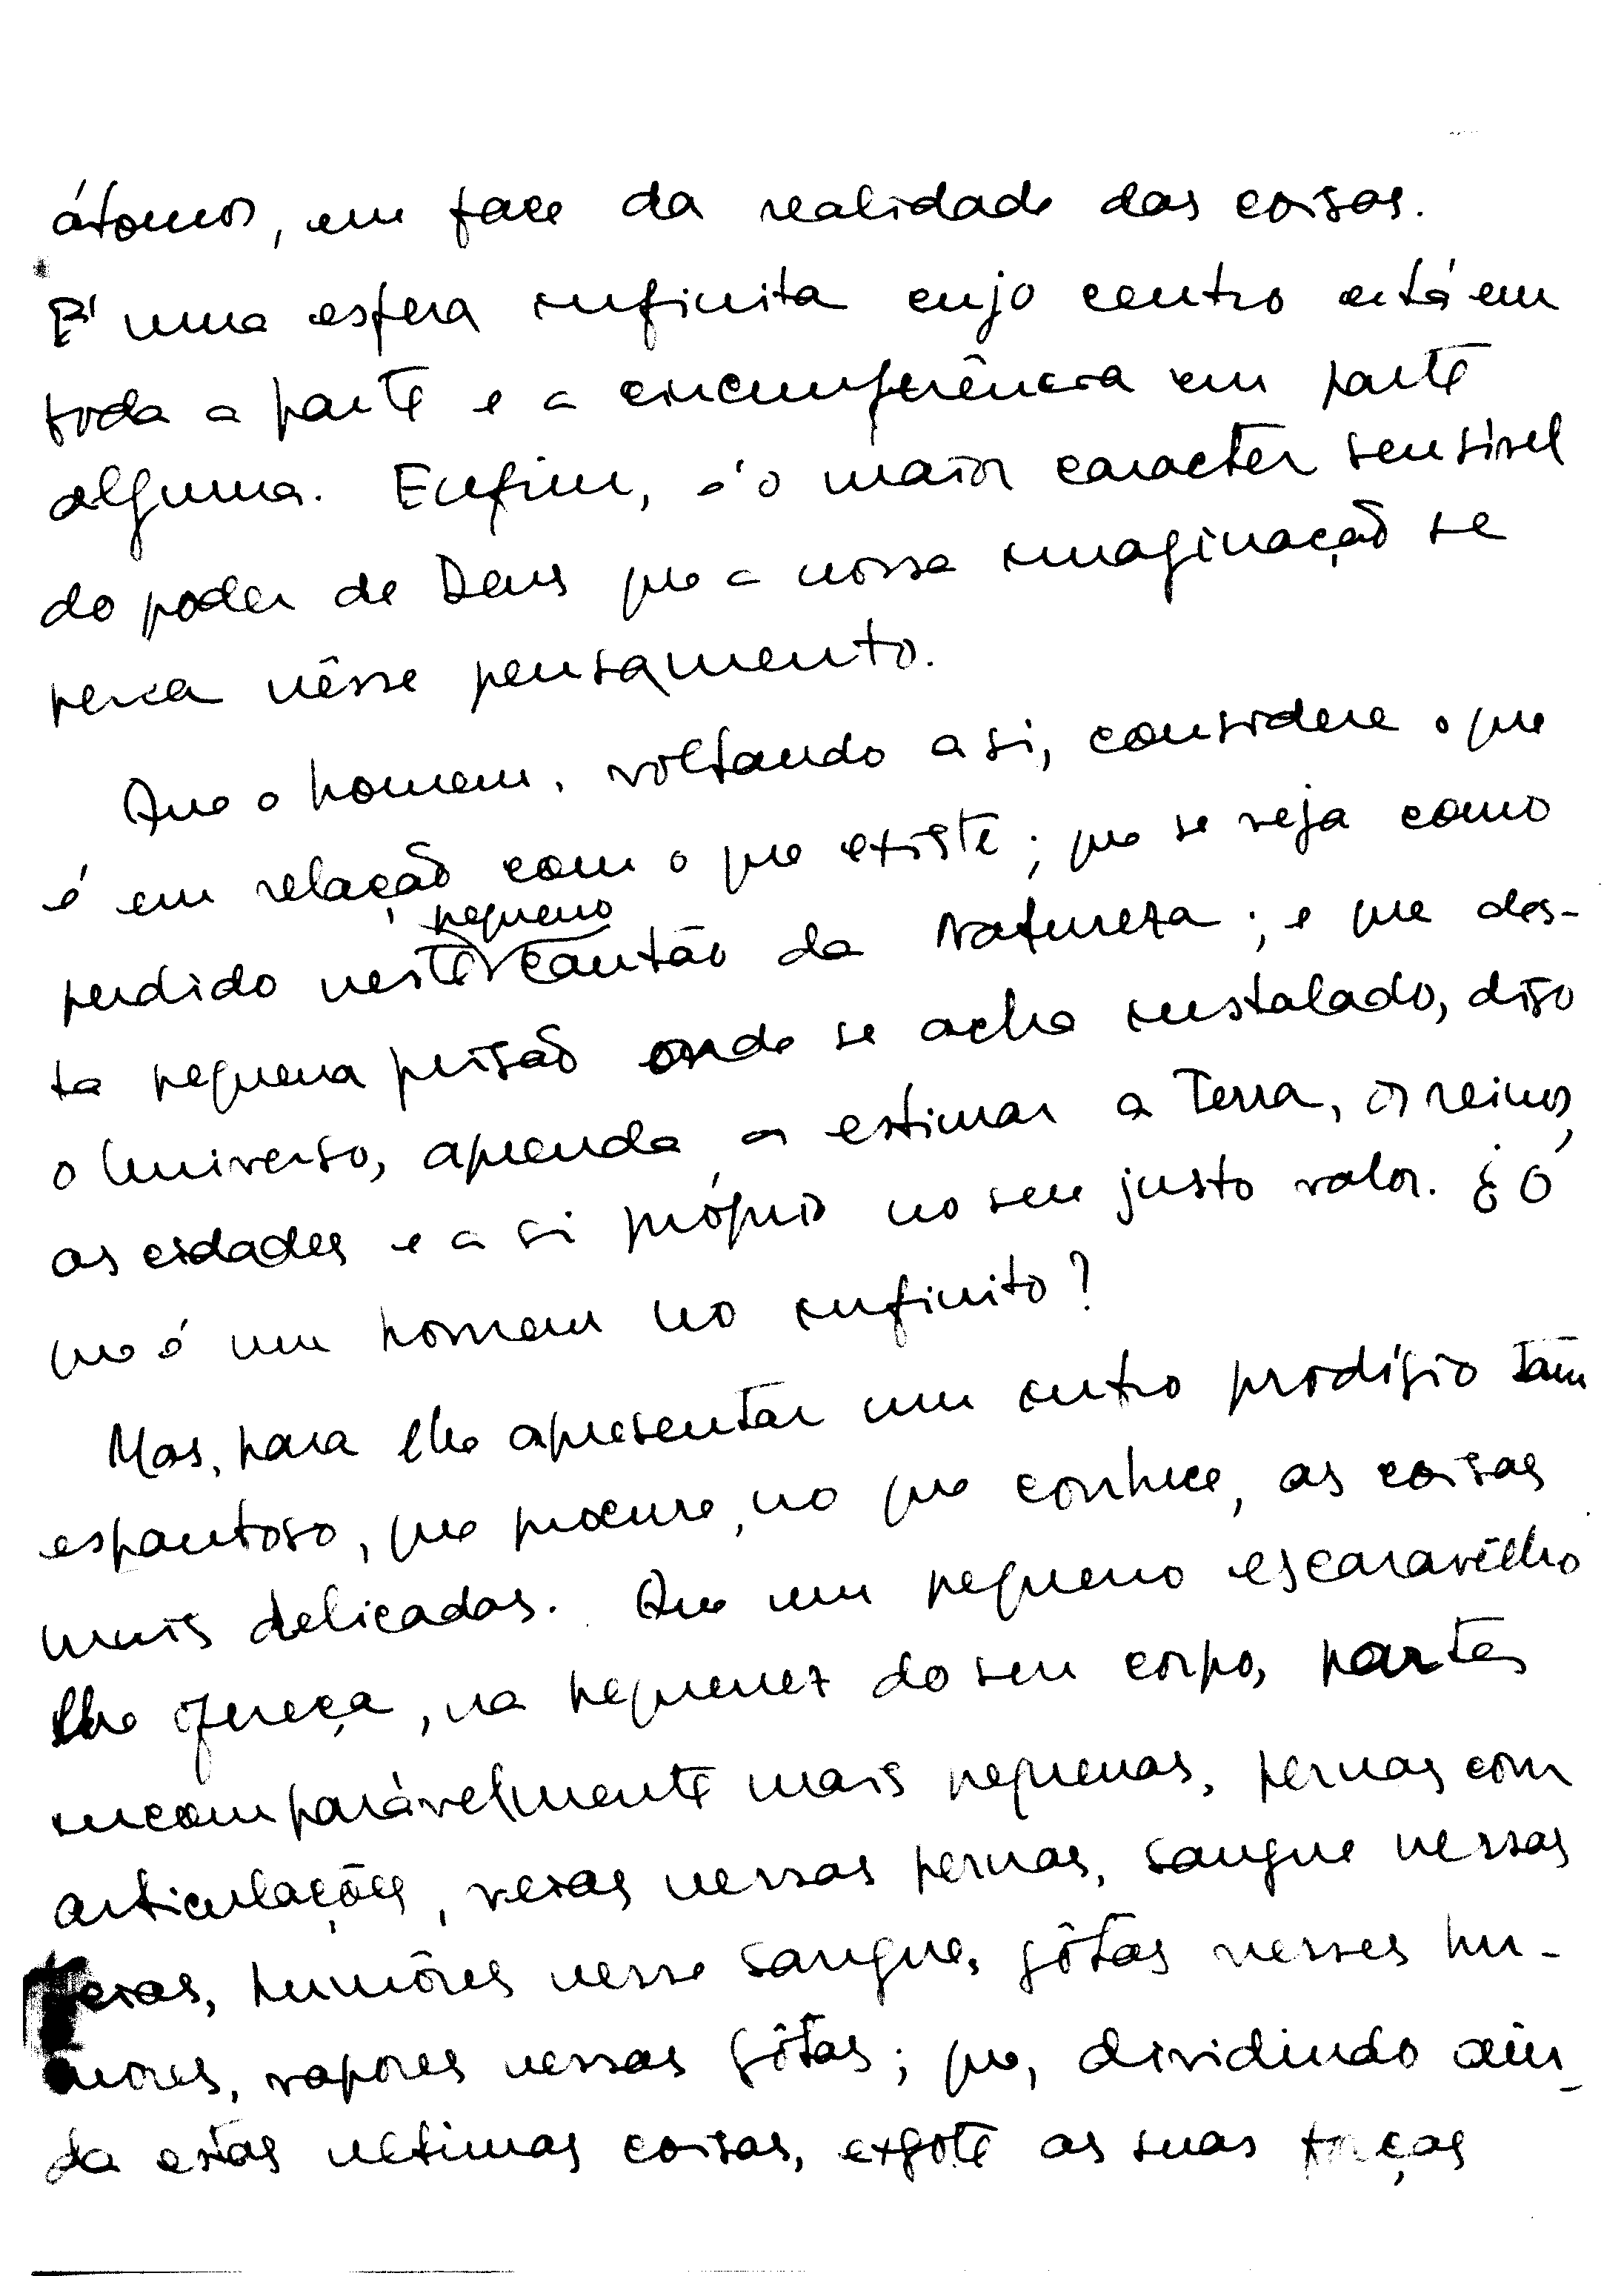 átomos, em face da realidade das coisas.
E' uma esfera infinita cujo centro está em
toda a parte e a circumferência em parte
alguma. Enfim, é o maior caracter sensivel
do poder de Deus que a nossa imaginação se
perca nêsse pensamento.
Que o homem, voltando a si, considere o que
é em relação com o que existe; que se veja como
pequeno
perdido neste cantão da Natureza; e que des-
ta pequena prisão onde se acha instalado, digo
o Universo, aprenda a estimar a Terra, os reinos,
as cidades e a si próprio no seu justo valor. ¿ O
que é um homem no infinito?
Mas, para lhe apresentar um outro prodígio tam
espantoso, que procure, no que conhece, as coisas
mais delicadas. Que um pequeno escaravêlho
lhe ofereça, na pequenez do seu corpo, partes
incomparávelmente mais pequenas, pernas com
articulações, veias nessas pernas, sangue nessas
veias, humôres nesse sangue, gôtas nesses hu-
mores, vapores nessas gôtas; que, dividindo ain-
da estas ultimas coisas, exgote as suas forças